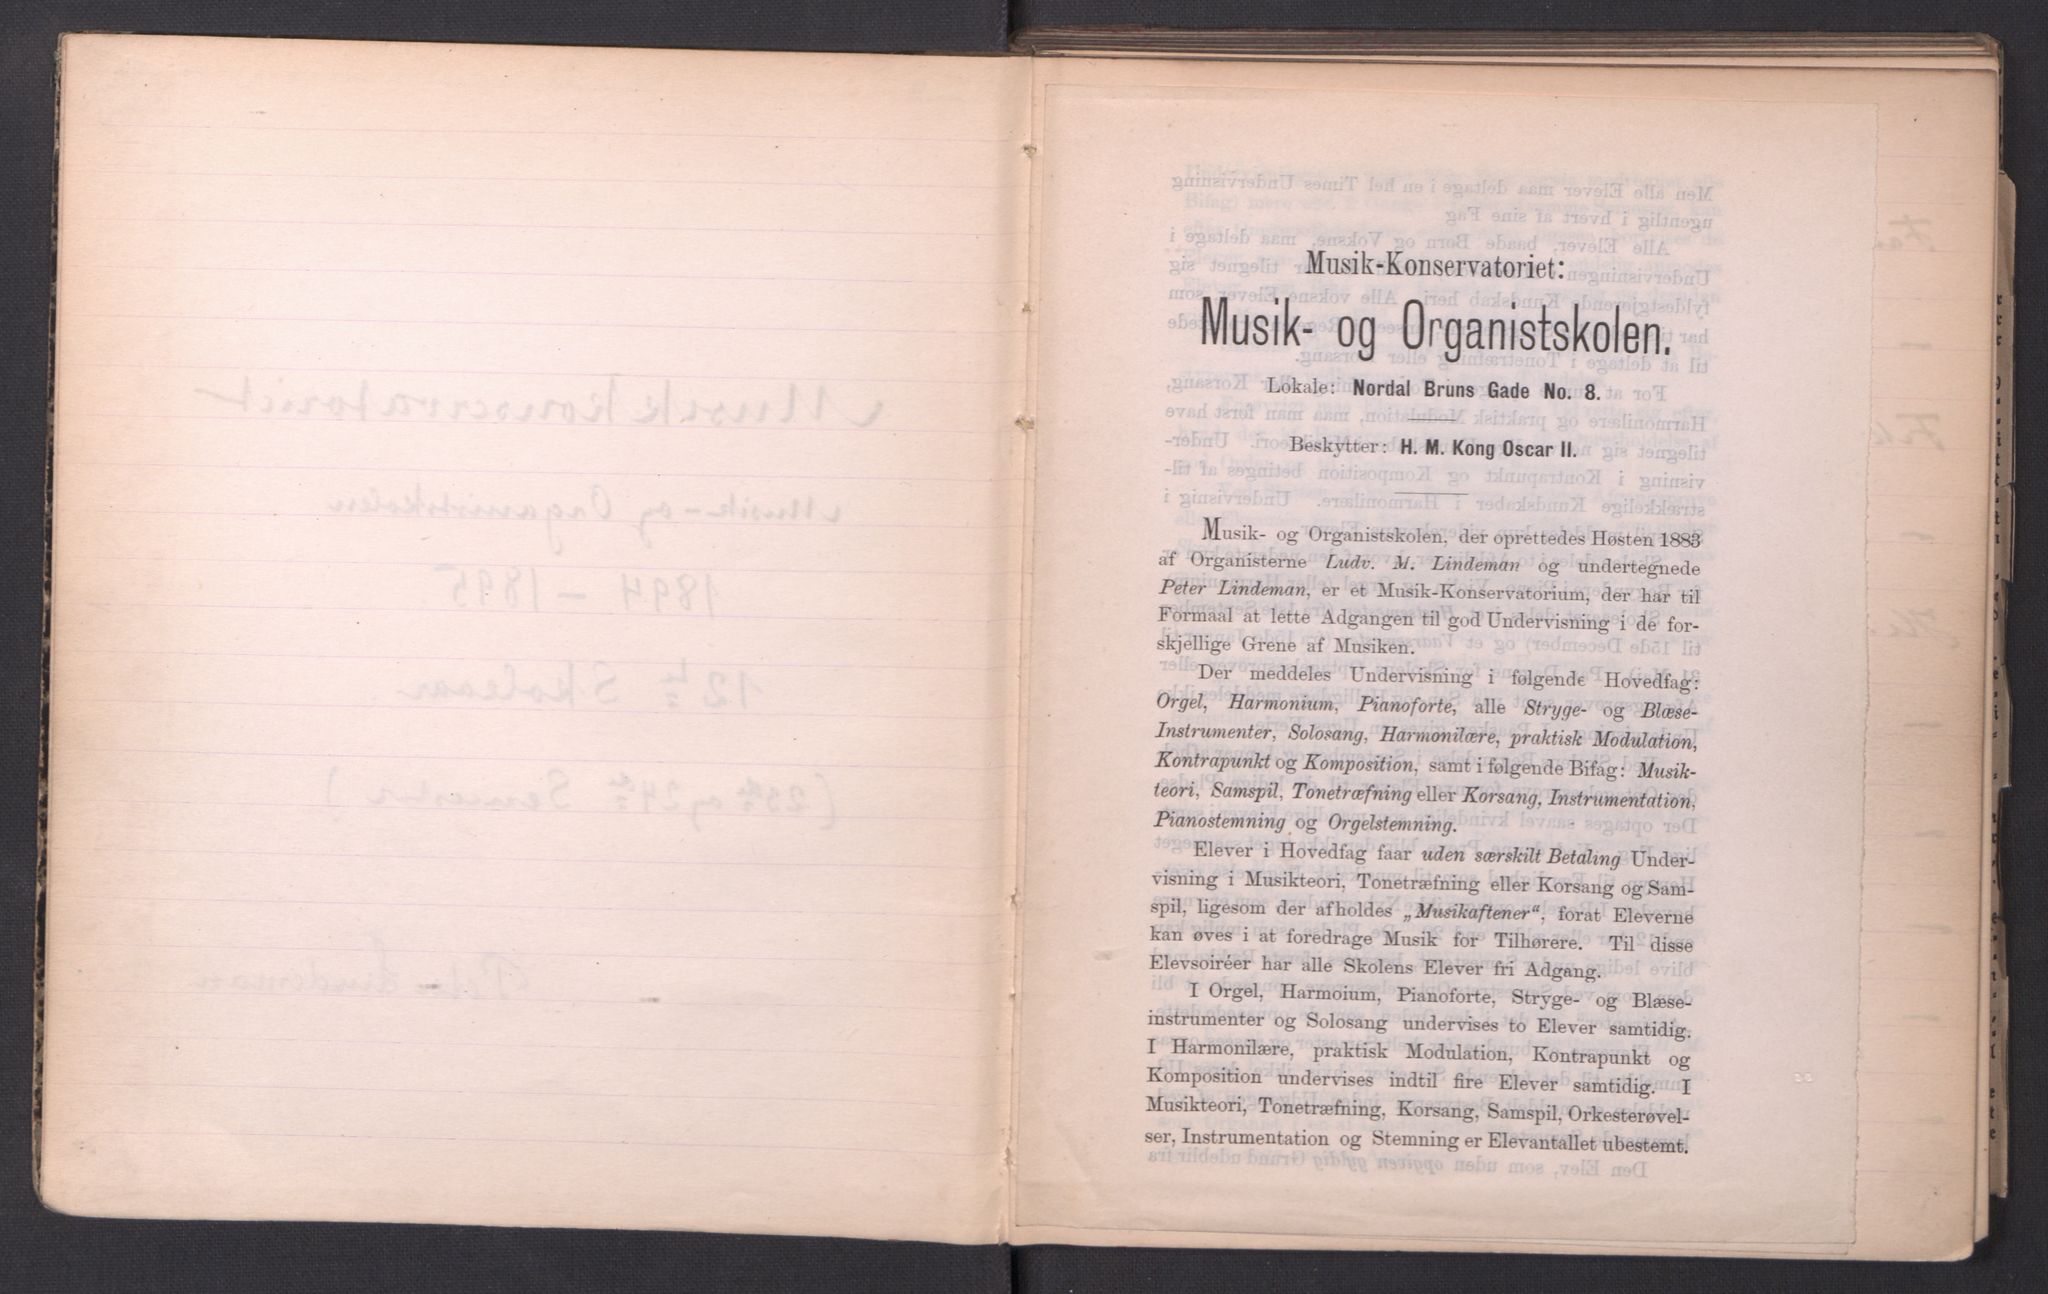 Musik-Konservatoriet:
Musik- og Organistskolen.
Lokale: Nordal Bruns Gade No. 8.
Beskytter: H. M. Kong Oscar II.
Musik- og Organistskolen, der oprettedes Høsten 1883
af Organisterne Ludv. M. Lindeman og undertegnede
Peter Lindeman, er et Musik-Konservatorium, der har til
Formaal at lette Adgangen til god Undervisning i de for-
skjellige Grene af Musiken.
Der meddeles Undervisning i følgende Hovedfag:
Orgel, Harmonium, Pianoforte, alle Stryge- og Blæse-
Instrumenter, Solosang, Harmonilære, praktisk Modulation,
Kontrapunkt og Komposition, samt i følgende Bifag: Musik-
teori, Samspil, Tonetræfning eller Korsang, Instrumentation,
Pianostemning og Orgelstemning.
Elever i Hovedfag faar uden særskilt Betaling Under-
visning i Musikteori, Tonetræfning eller Korsang og Sam-
spil, ligesom der afholdes „Musikaftener“, forat Eleverne
kan øves i at foredrage Musik for Tilhørere. Til disse
Elevsoiréer har alle Skolens Elever fri Adgang.
I Orgel, Harmoium, Pianoforte, Stryge- og Blæse-
instrumenter og Solosang undervises to Elever samtidig.
I Harmonilære, praktisk Modulation, Kontrapunkt og
Komposition undervises indtil fire Elever samtidig. I
Musikteori, Tonetræfning, Korsang, Samspil, Orkesterøvel-
ser, Instrumentation og Stemning er Elevantallet ubestemt.